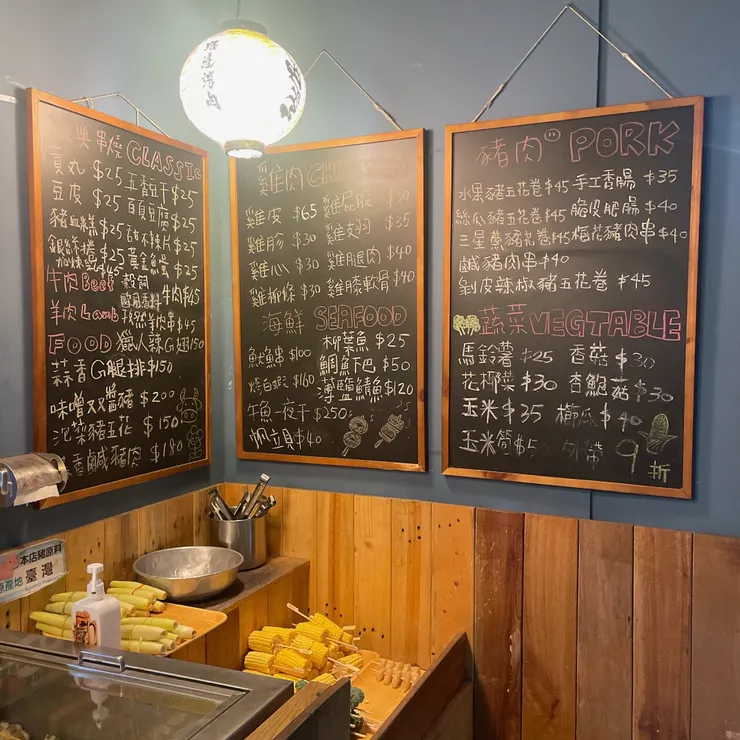 串燒 CLASSIC
貢丸 $25 五香豆干 $25
豆皮 $25 百頁豆腐 $25
豬血糕 $25 甜不辣片 $25
銀絲捲 $25 黃金魚蛋 $25
牛肉Beef 牛肉 $45
羊肉Lamb 羊肉串 $45
FOOD 獵人辣G翅 150
蒜香G腿排 $150
味噌双醬豬 $200
泡菜豬五花 $150
香鹹豬肉 $180
雞肉 CH
雞皮 $65 雞屁股 $30
雞胗 $30 雞翅 $35
雞心 $30 雞腿肉 $40
雞柳條 $30 雞膝軟骨 $40
海鮮 SEAFOOD
柳葉魚 $25
魷魚串 $100 鯛魚下巴 $50
燒白蝦 $160 薄鹽鯖魚 $120
午魚一夜干 $250
帆立貝 $40
豬肉 PORK
水果豬五花卷 $45 手工香腸 $35
絲瓜豬五花卷 $45 脆皮肥腸 $40
三星蔥豬花卷 $45 梅花豬肉串 $40
鹹豬肉串 $40
剝皮辣椒豬五花卷 $45
蔬菜 VEGTABLE
馬鈴薯 $25 香菇 $30
花椰菜 $30 杏鮑菇 $30
玉米 $35 櫛瓜 $40
玉米筍 $5 外帶 9折
本店豬原料
原產地 臺灣